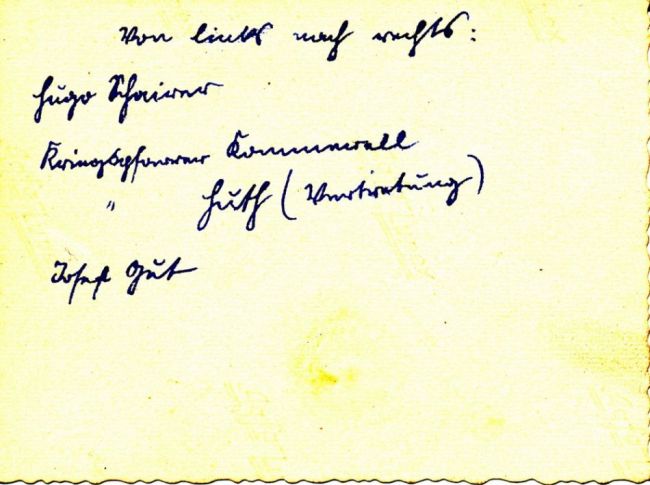 Von links nach rechts:
Hugo Schairer
Kriegspfarrer Kommerell
" Huth (Vertretung)
Josef Gut